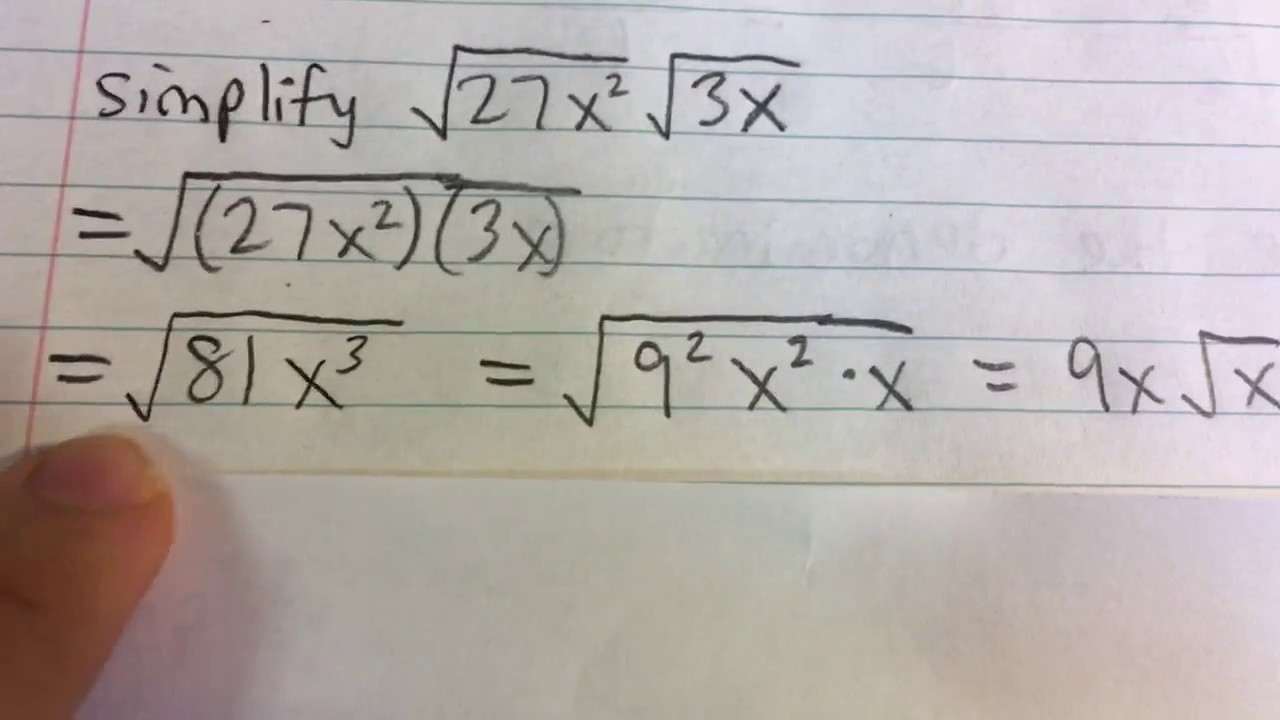 simplify √27x² √3x
= √(27x²)(3x)
= √81x³ = √9²x²·x = 9x√x